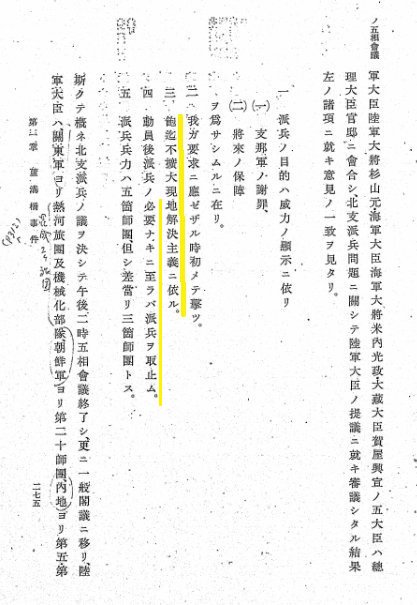 ノ五相會議
軍大臣陸軍大將杉山元海軍大臣海軍大將米內光政、大藏大臣賀屋興宣ノ五大臣ハ總
理大臣官邸ニ會合シ、北支派兵問題ニ關シテ陸軍大臣ノ提議ニ就キ審議シタル結果
左ノ諸項ニ就キ意見ノ一致ヲ見タリ。
一 派兵ノ目的ハ威力ノ顯示ニ依リ
(一) 支那軍ノ謝罪、
(二) 將來ノ保障
ヲ爲サシムルニ在リ。
二 我ガ要求ニ應ゼザル時初メテ擊ツ。
三 飽迄不擴大現地解決主義ニ依ル。
四 動員後派兵ノ必要ナキニ至ラバ派兵ヲ取止ム。
五 派兵兵力ハ五箇師團、但シ差當リ三箇師團トス。
斯クテ概ネ北支派兵ノ議ヲ決シテ午後二時五相會議終了シ、更ニ一般閣議ニ移リ、陸
軍大臣ハ關東軍ヨリ熱河旅團及機械化部隊、朝鮮軍ヨリ第二十師團、內地ヨリ第五、第
第一章 蘆溝橋事件
二七五